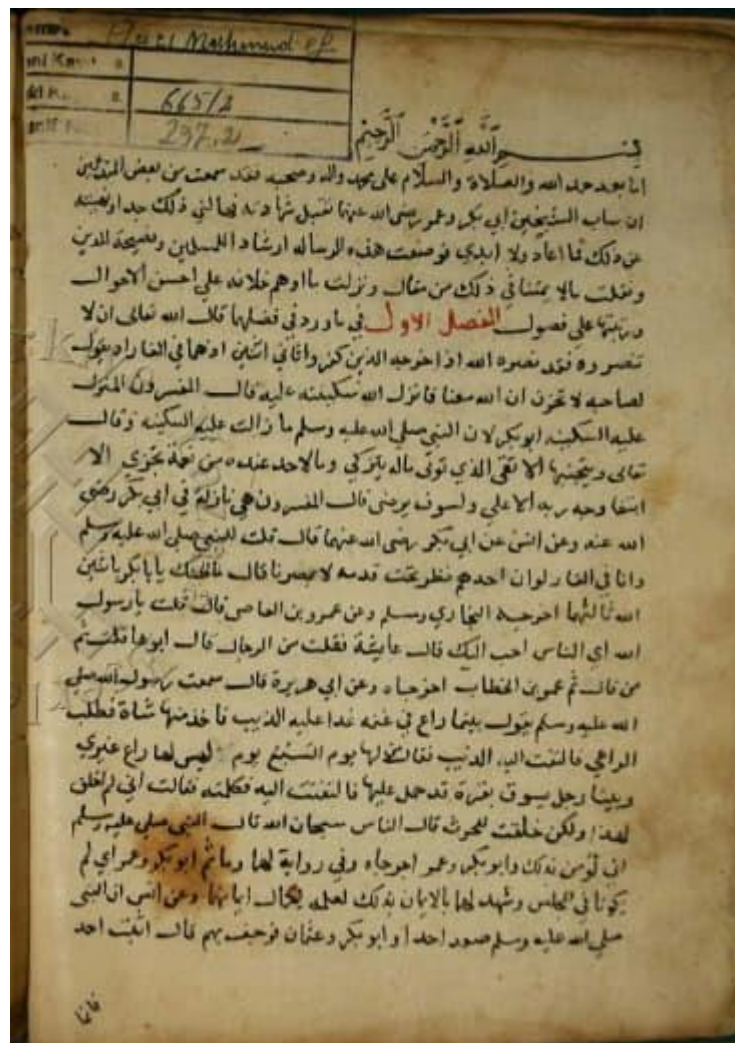 Mahmud ef.
665/2
297.
بسم الله الرحمن الرحيم
اما بعد حمد الله والصلاة والسلام على محمد واله وصحبه فقد سمعت من بعض
ان ساب الشيخين ابي بكر وعمر رضى الله عنهما تقبل شهادته فهالني ذلك جدا ونهيته
عن ذلك فما اعاد ولا ابدي فوضعت هذه الرساله ارشادا للمسلمين ونصيحة للدين
ونقلت مالا يمتنا في ذلك من مقال ونزلت ما اوهم خلافه على احسن الاحوال
ورتبتها على فصول الفصل الاول في ما ورد في فضلهما قال الله تعالى ان لا
تنصروه فقد نصره الله اذ اخرجه الذين كفروا ثاني اثنين اذ هما في الغار اذ يقول
لصاحبه لا تحزن ان الله معنا فانزل الله سكينته عليه قال المفسرون المنزل
عليه السكينه ابو بكر لان النبي صلى الله عليه وسلم ما زالت عليه السكينه وقال
تعالى وسيجنبها الاتقى الذي يوتى ماله يتزكى وما لاحد عنده من نعمة تجزي الا
ابتغا وجه ربه الاعلى ولسوف يرضى قال المفسرون هي نازلة في ابي بكر رضى
الله عنه وعن انس عن ابي بكر رضى الله عنهما قال قلت للنبي صلى الله عليه وسلم
وانا في الغار لو ان احدهم نظر تحت قدمه لابصرنا فقال ما ظنك يا ابا بكر باثنين
الله ثالثهما اخرجه البخاري ومسلم وعن عمرو بن العاص قال قلت يا رسول
الله اي الناس احب اليك قال عايشة فقلت من الرجال قال ابوها قلت ثم
من قال ثم عمر بن الخطاب اخرجاه وعن ابي هريرة قال سمعت رسول الله صلى
الله عليه وسلم يقول بينما راع في غنمه عدا عليه الذيب فاخذ منها شاة فطلبه
الراعي فالتفت اليه الذيب فقال من لها يوم السبع يوم ليس لها راع غيري
وبينا رجل يسوق بقرة قد حمل عليها فالتفتت اليه فكلمته فقالت اني لم اخلق
لهذا ولكن خلقت للحرث قال الناس سبحان الله قال النبي صلى عليه وسلم
اني اومن بذلك وابو بكر وعمر اخرجاه وفي رواية لهما وما ثم ابو بكر وعمر اي لم
يكونا في المجلس وشهد لهما بالايمان بذلك لعلمه بكمال ايمانهما وعن انس ان النبي
صلى الله عليه وسلم صعد احدا وابو بكر وعثمان فرجف بهم فقال اثبت احد
فانما